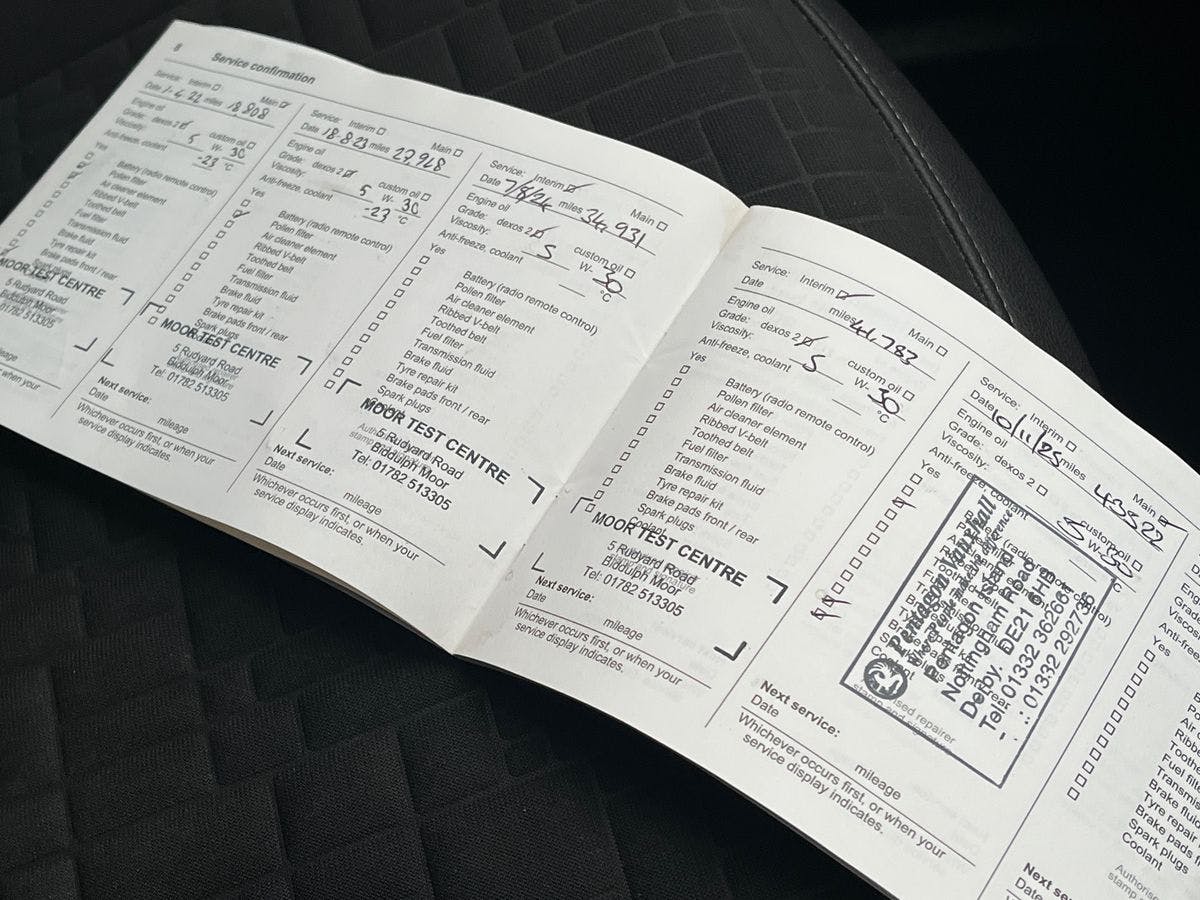 8 Service confirmation
Service: Interim □ Main ☑
Date 1-4.22 miles 18 808
Engine oil
Grade: dexos 2 ☑ custom oil □
Viscosity: 5 W- 30
Anti-freeze, coolant -23 °C
Yes
Battery (radio remote control)
Pollen filter
Air cleaner element
Ribbed V-belt
Toothed belt
Fuel filter
Transmission fluid
Brake fluid
Tyre repair kit
Brake pads front / rear
MOOR TEST CENTRE
5 Rudyard Road
Biddulph Moor
01782 513305
mileage
or when your
Service: Interim □ Main □
Date 18-8-23 miles 27928
Engine oil
Grade: dexos 2 ☑ custom oil □
Viscosity: 5 W- 30
Anti-freeze, coolant -23 °C
Yes
Battery (radio remote control)
Pollen filter
Air cleaner element
Ribbed V-belt
Toothed belt
Fuel filter
Transmission fluid
Brake fluid
Tyre repair kit
Brake pads front / rear
Spark plugs
MOOR TEST CENTRE
5 Rudyard Road
Biddulph Moor
Tel: 01782 513305
Next service:
Date mileage
Whichever occurs first, or when your
service display indicates.
Service: Interim ☑ Main □
Date 7/8/24 miles 34,931
Engine oil
Grade: dexos 2 ☑ custom oil □
Viscosity: 5 W- 30
Anti-freeze, coolant °C
Yes
Battery (radio remote control)
Pollen filter
Air cleaner element
Ribbed V-belt
Toothed belt
Fuel filter
Transmission fluid
Brake fluid
Tyre repair kit
Brake pads front / rear
Spark plugs
MOOR TEST CENTRE
5 Rudyard Road
Biddulph Moor
Tel: 01782 513305
Next service:
Date mileage
Whichever occurs first, or when your
service display indicates.
Service: Interim ☑ Main □
Date miles 41,783
Engine oil
Grade: dexos 2 ☑ custom oil □
Viscosity: 5 W- 30
Anti-freeze, coolant °C
Yes
Battery (radio remote control)
Pollen filter
Air cleaner element
Ribbed V-belt
Toothed belt
Fuel filter
Transmission fluid
Brake fluid
Tyre repair kit
Brake pads front / rear
Spark plugs
Coolant
MOOR TEST CENTRE
5 Rudyard Road
Biddulph Moor
Tel: 01782 513305
Next service:
Date mileage
Whichever occurs first, or when your
service display indicates.
Service: Interim □ Main ☑
Date 10/11/25 miles 43522
Engine oil
Grade: dexos 2 □ custom oil □
Viscosity: 5 W- 30
Anti-freeze, coolant °C
Yes
Pentagon Vauxhall
Pentagon Island
Nottingham Road
Derby. DE21 6HB
Tel: 01332 362661
: 01332 292736
repairer
Next service:
Date mileage
Whichever occurs first, or when your
service display indicates.
Yes
Ribbed
Toothe
Fuel filter
Transmis
Brake fluid
Tyre repair
Brake pads
Spark plugs
Coolant
Authorise
stamp
Next se
Date